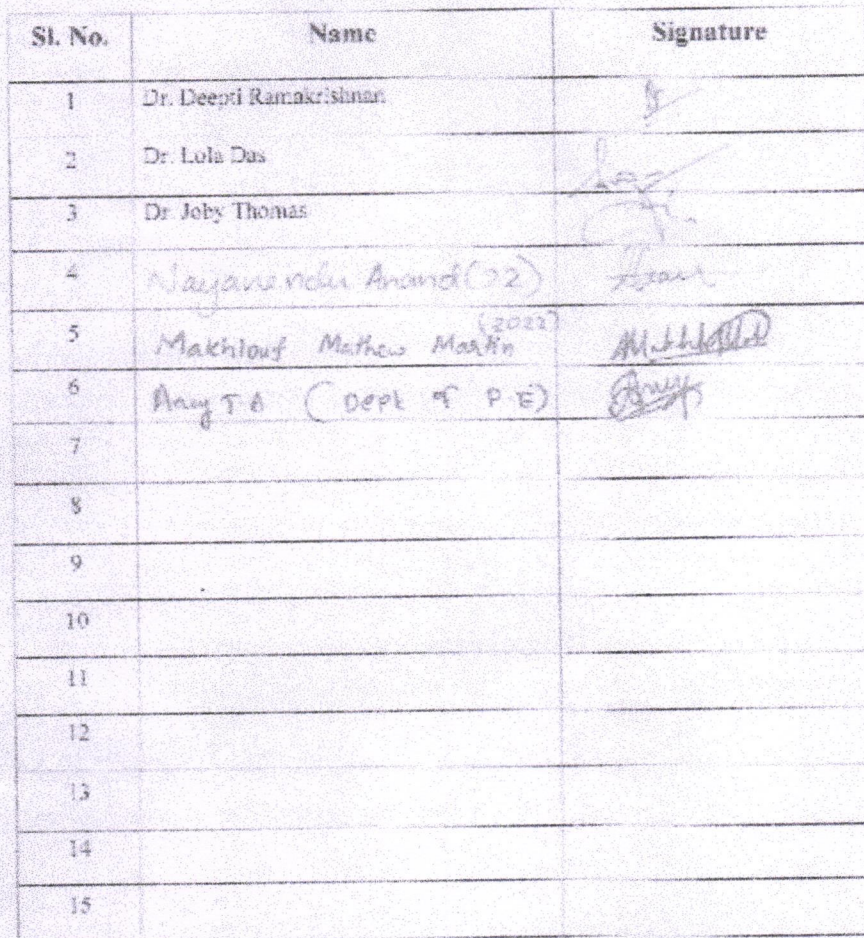 Sl. No. Name Signature
1 Dr. Deepti Ramakrishnan
2 Dr. Lola Das
3 Dr. Joby Thomas
4 Nayanendu Anand (22)
5 Makhlouf Mathew Martin (2022)
6 T A (Dept of P.E)
7
8
9
10
11
12
13
14
15